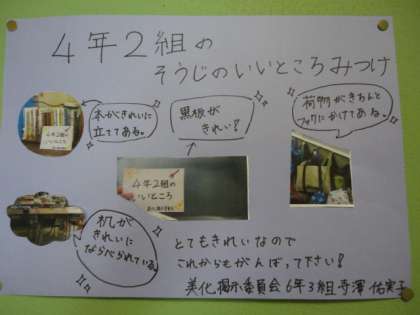 4年2組の
そうじのいいところみつけ
本がきれいに
立ててある。
黒板が
きれい!
荷物がきちんと
フックにかけてある。
4年2組の
いいところ
4年2組の
いいところ
机が
きれいに
ならべられている。
とてもきれいなので
これからもがんばって下さい!
美化掲示委員会 6年3組 寺澤 佑実子